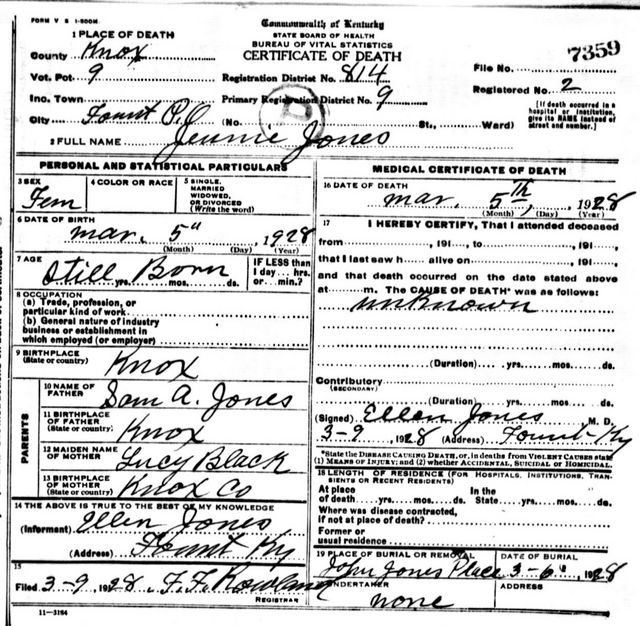 FORM V S 1-500M.
Commonwealth of Kentucky
STATE BOARD OF HEALTH
BUREAU OF VITAL STATISTICS
CERTIFICATE OF DEATH
1 PLACE OF DEATH
County Knox
Vot. Pct. 9
Inc. Town
City Fount P.O
Registration District No. 814
Primary Registration District No. 9
(No. St., Ward)
File No. 7359
Registered No. 2
[If death occurred in a
hospital or institution,
give its NAME instead of
street and number.]
2 FULL NAME Jennie Jones
PERSONAL AND STATISTICAL PARTICULARS
3 SEX Fem
4 COLOR OR RACE
5 SINGLE,
MARRIED
WIDOWED,
OR DIVORCED
(Write the word)
6 DATE OF BIRTH
mar. 5" 1928
(Month) (Day) (Year)
7 AGE
Still Born
yrs. mos. ds.
IF LESS than
1 day hrs.
or min.?
8 OCCUPATION
(a) Trade, profession, or
particular kind of work
(b) General nature of industry
business or establishment in
which employed (or employer)
9 BIRTHPLACE
(State or country) Knox
PARENTS
10 NAME OF
FATHER Sam A. Jones
11 BIRTHPLACE
OF FATHER
(State or country) Knox
12 MAIDEN NAME
OF MOTHER Lucy Black
13 BIRTHPLACE
OF MOTHER
(State or country) Knox Co
14 THE ABOVE IS TRUE TO THE BEST OF MY KNOWLEDGE
(Informant) Ellen Jones
(Address) Fount Ky
15
Filed 3-9 1928 F. F. Rowland
REGISTRAR
11-3184
MEDICAL CERTIFICATE OF DEATH
16 DATE OF DEATH
mar. 5th, 1928
(Month) (Day) (Year)
17 I HEREBY CERTIFY, That I attended deceased
from , 191 , to , 191 ,
that I last saw h alive on , 191 ,
and that death occurred on the date stated above
at m. The CAUSE OF DEATH* was as follows:
unknown
(Duration) yrs. mos. ds.
Contributory
(SECONDARY)
(Duration) yrs. mos. ds.
(Signed) Ellen Jones M. D.
3-9 1928 (Address) Fount-Ky
*State the DISEASE CAUSING DEATH, or, in deaths from VIOLENT CAUSES state
(1) MEANS OF INJURY; and (2) whether ACCIDENTAL, SUICIDAL or HOMICIDAL.
18 LENGTH OF RESIDENCE (FOR HOSPITALS, INSTITUTIONS, TRAN-
SIENTS OR RECENT RESIDENTS)
At place
of death yrs. mos. ds.
In the
State yrs. mos. ds.
Where was disease contracted,
if not at place of death?
Former or
usual residence
19 PLACE OF BURIAL OR REMOVAL
John Jones Place
DATE OF BURIAL
3-6" 1928
UNDERTAKER
none